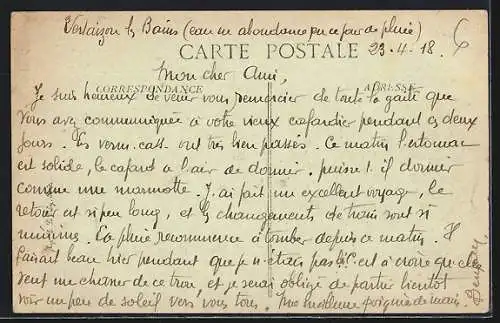 Vertaizon les Bains (eau en abondance en ce jour de pluie)
CARTE POSTALE
23-4-18. 6
Mon cher Ami,
CORRESPONDANCE ADRESSE
Je suis heureux de venir vous remercier de toute la gaité que
vous avez communiquée à votre vieux cafardier pendant ces deux
jours. Les vermi-cass. ont très bien passés. Ce matin l'estomac
est solide, le cafard a l'air de dormir, puisse-t-il dormir
comme une marmotte. J'ai fait un excellent voyage, le
retour est si peu long, et les changements de trains sont si
minimes. La pluie recommence à tomber depuis ce matin. Il
faisait beau hier pendant que je n'étais pas là. C'est à croire que cela
sent une charogne de ce trou, et je serai obligé de partir bientôt
voir un peu de soleil vers vous tous. Une meilleure poignée de main.